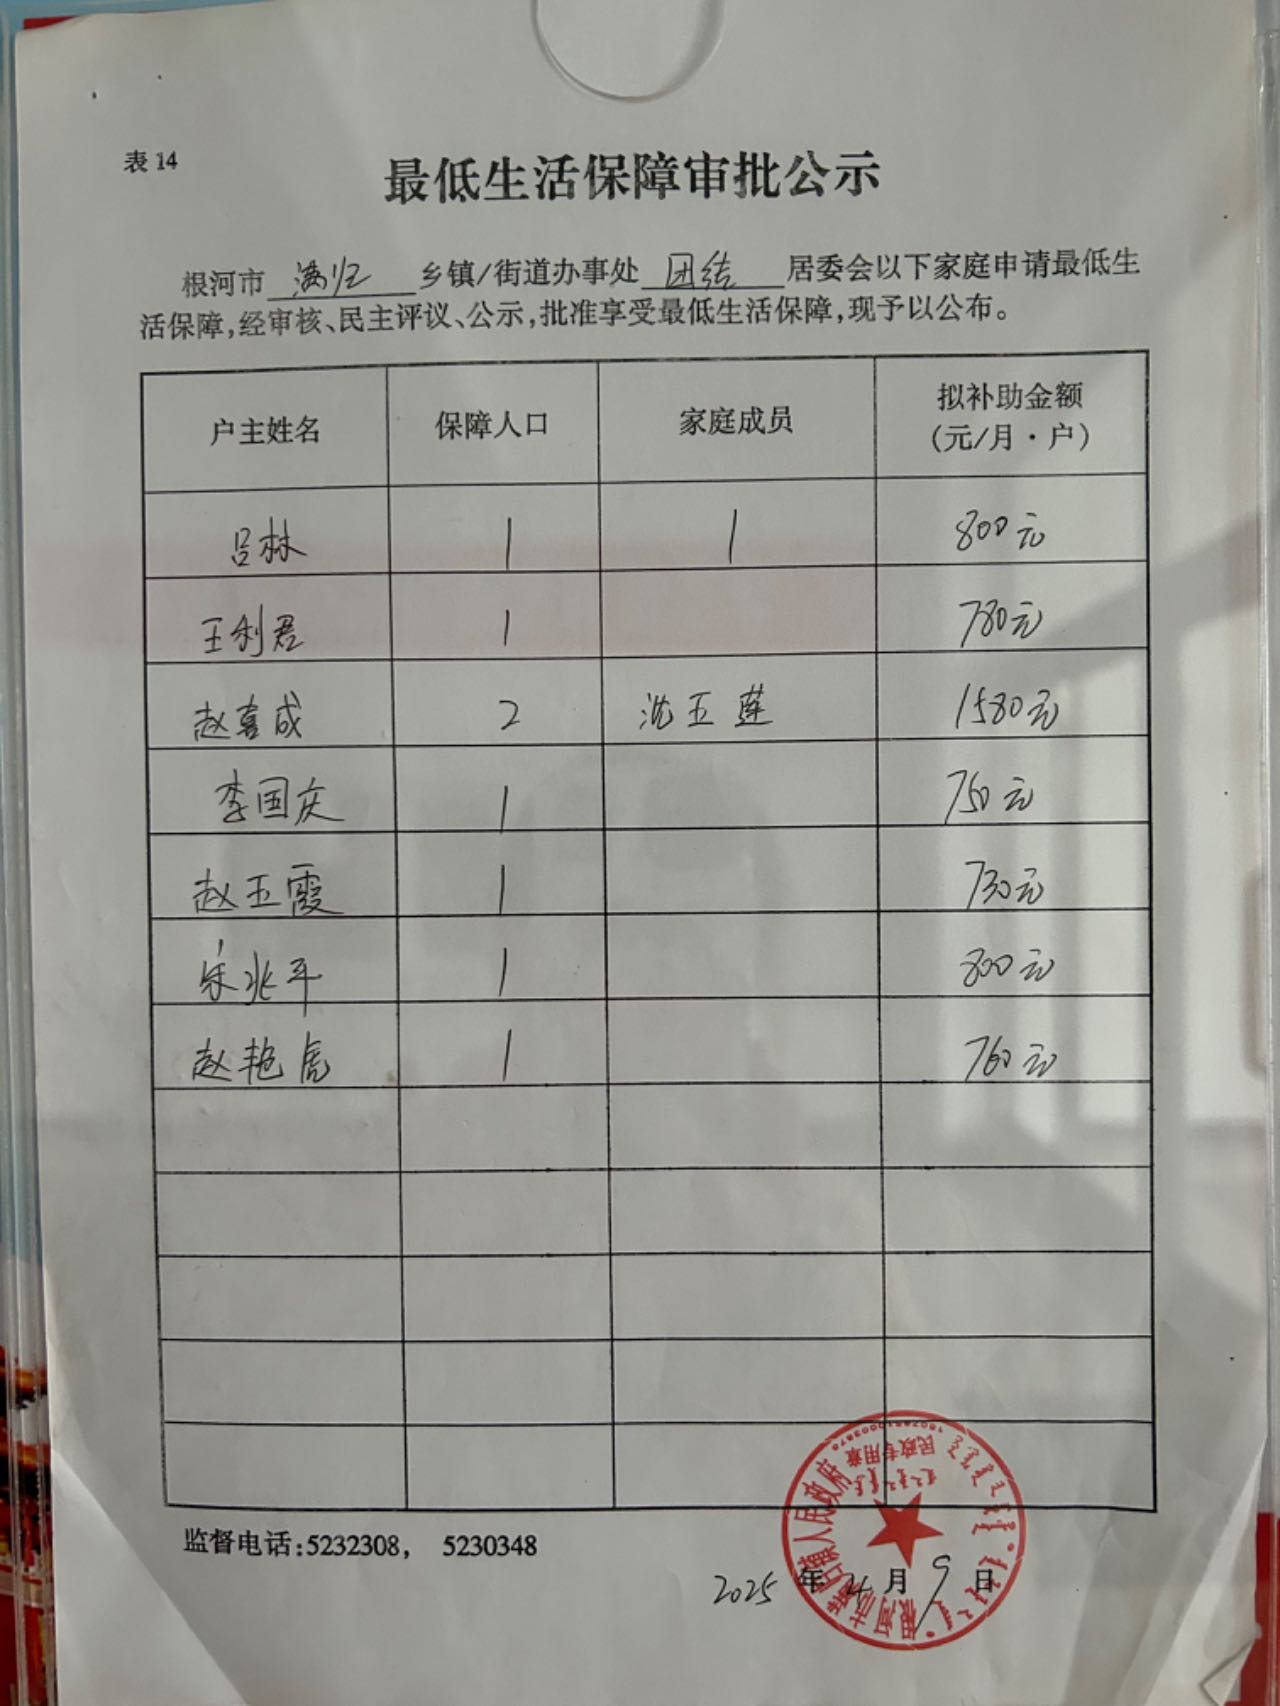 表14
最低生活保障审批公示
根河市 满归 乡镇/街道办事处 团结 居委会以下家庭申请最低生
活保障,经审核、民主评议、公示,批准享受最低生活保障,现予以公布。
户主姓名 保障人口 家庭成员 拟补助金额
(元/月·户)
吕林 1 1 800元
王利君 1 780元
赵喜成 2 沈玉莲 1580元
李国庆 1 750元
赵玉霞 1 730元
宋兆平 1 800元
赵艳虎 1 760元
监督电话:5232308, 5230348
2025年4月9日
根河市满归镇人民政府
民政专用章